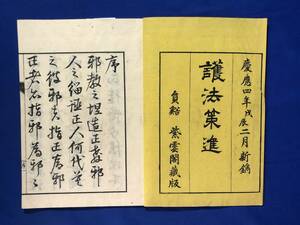 慶應四年戊辰二月新鐫
護法策進
負谿 紫雲閣藏版
序
邪教之捏造正害邪
人之緇極正人何代蔑
之彼邪者指正為邪
正者亦指邪為邪之